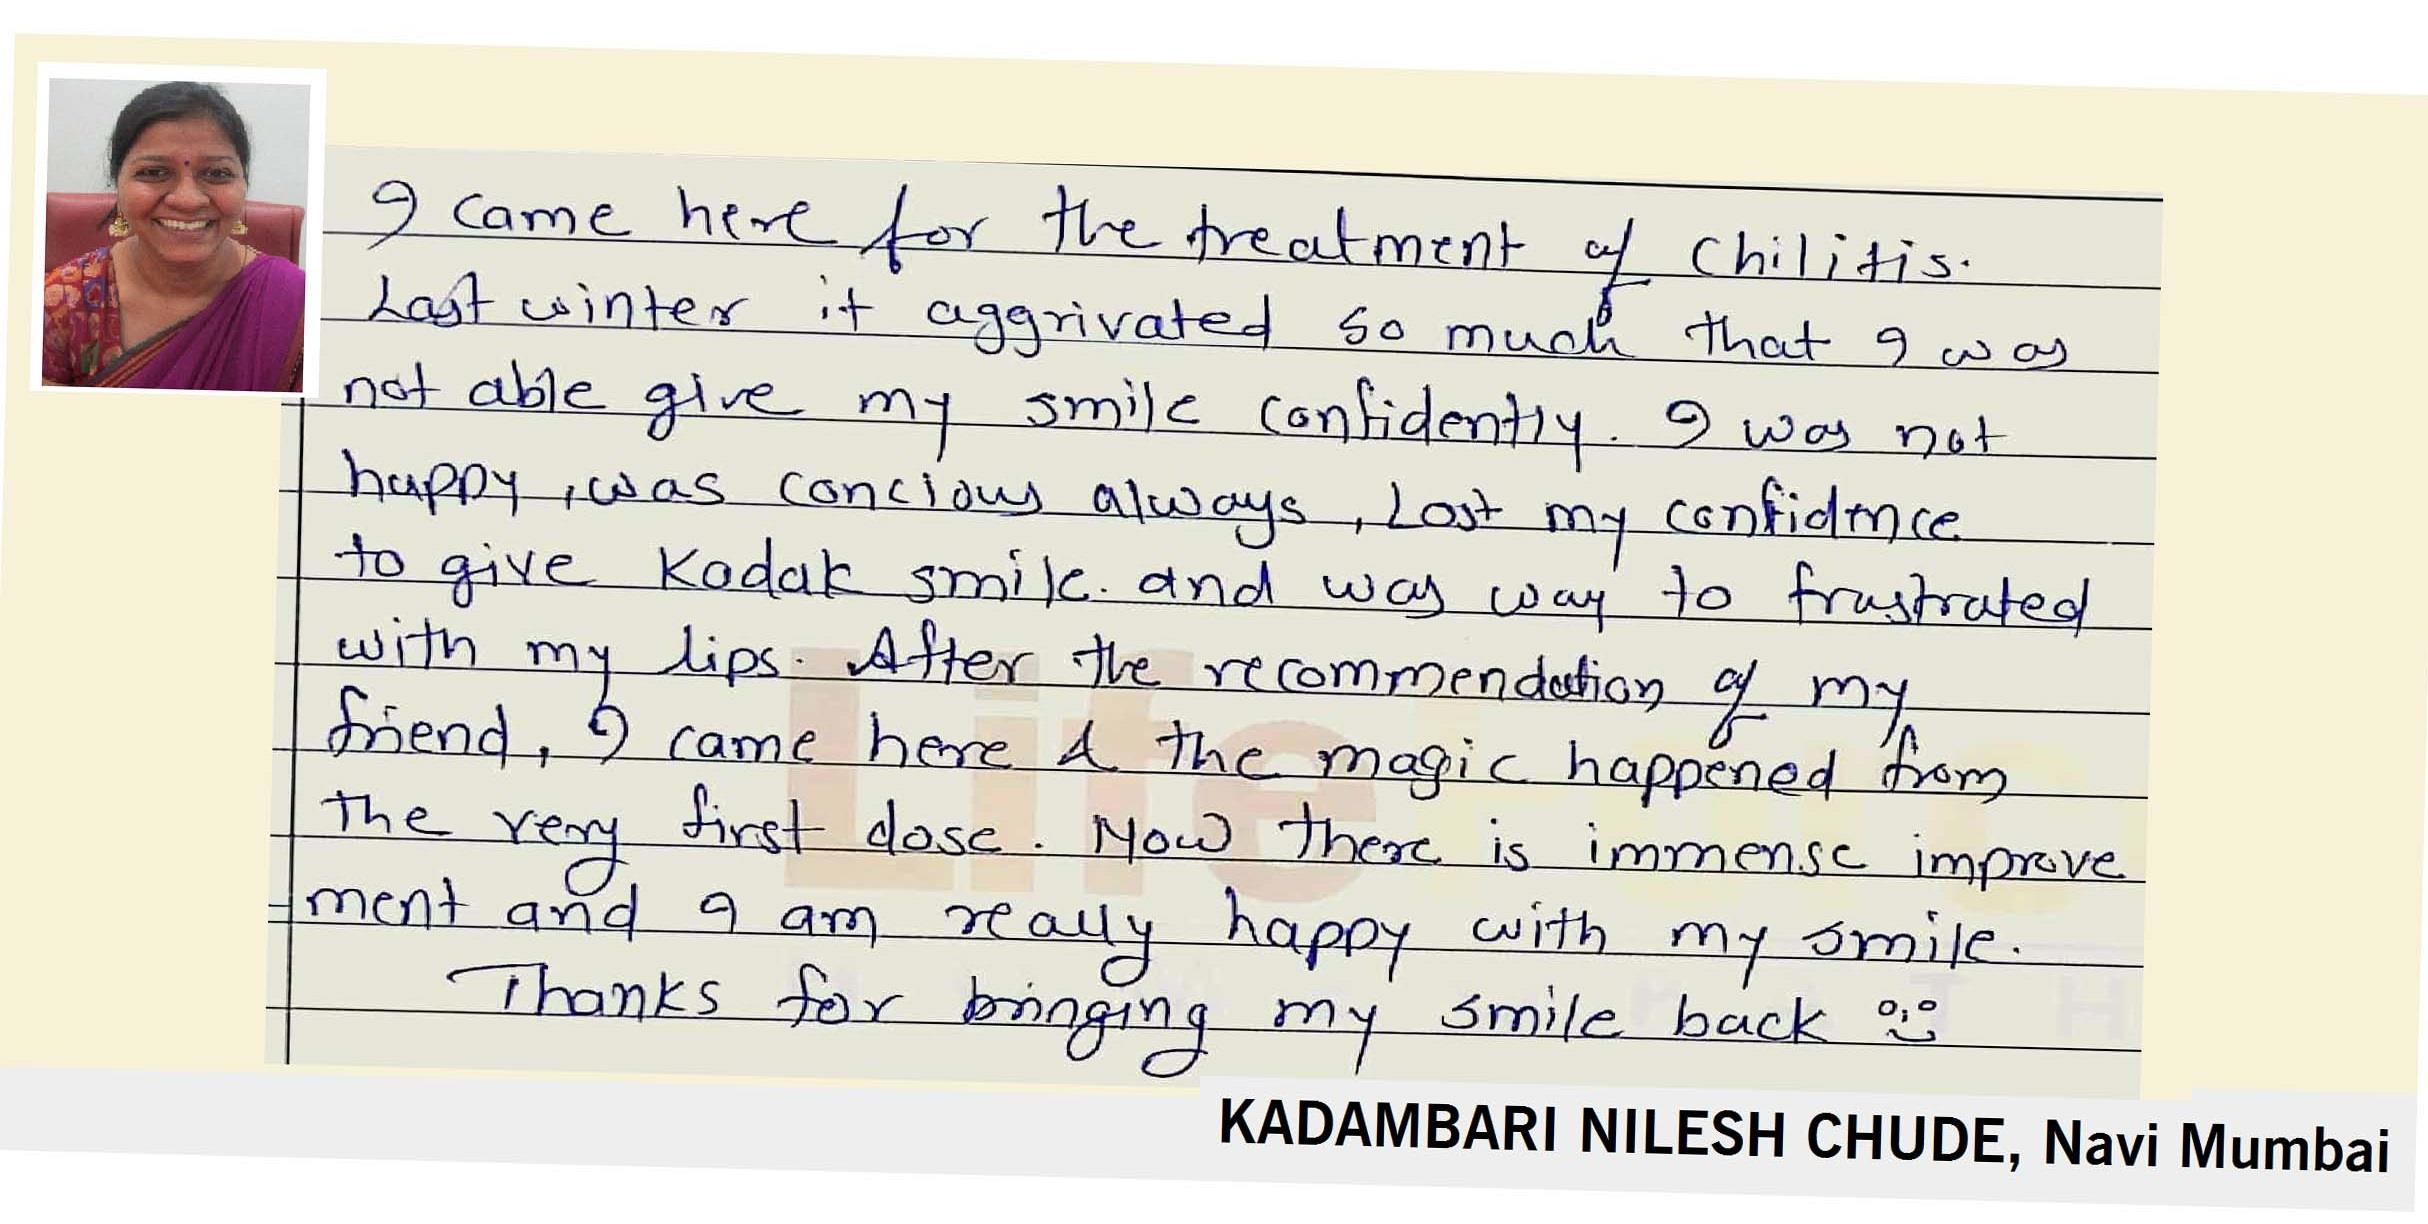 I came here for the treatment of Chilitis.
Last winter it aggrivated so much that I was
not able give my smile confidently. I was not
happy, was concious always, Lost my confidnce
to give Kodak smile. and was way to frustrated
with my lips. After the recommendation of my
friend, I came here & the magic happened from
the very first dose. Now there is immense improve
ment and I am really happy with my smile.
Thanks for bringing my smile back
KADAMBARI NILESH CHUDE, Navi Mumbai
Life